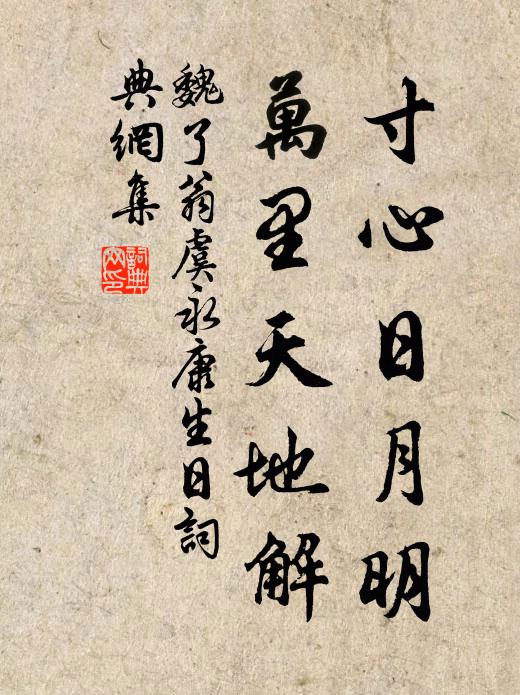 寸心日月明
萬里天地解
魏了翁虞永康生日詞
典網集
詞典
文印